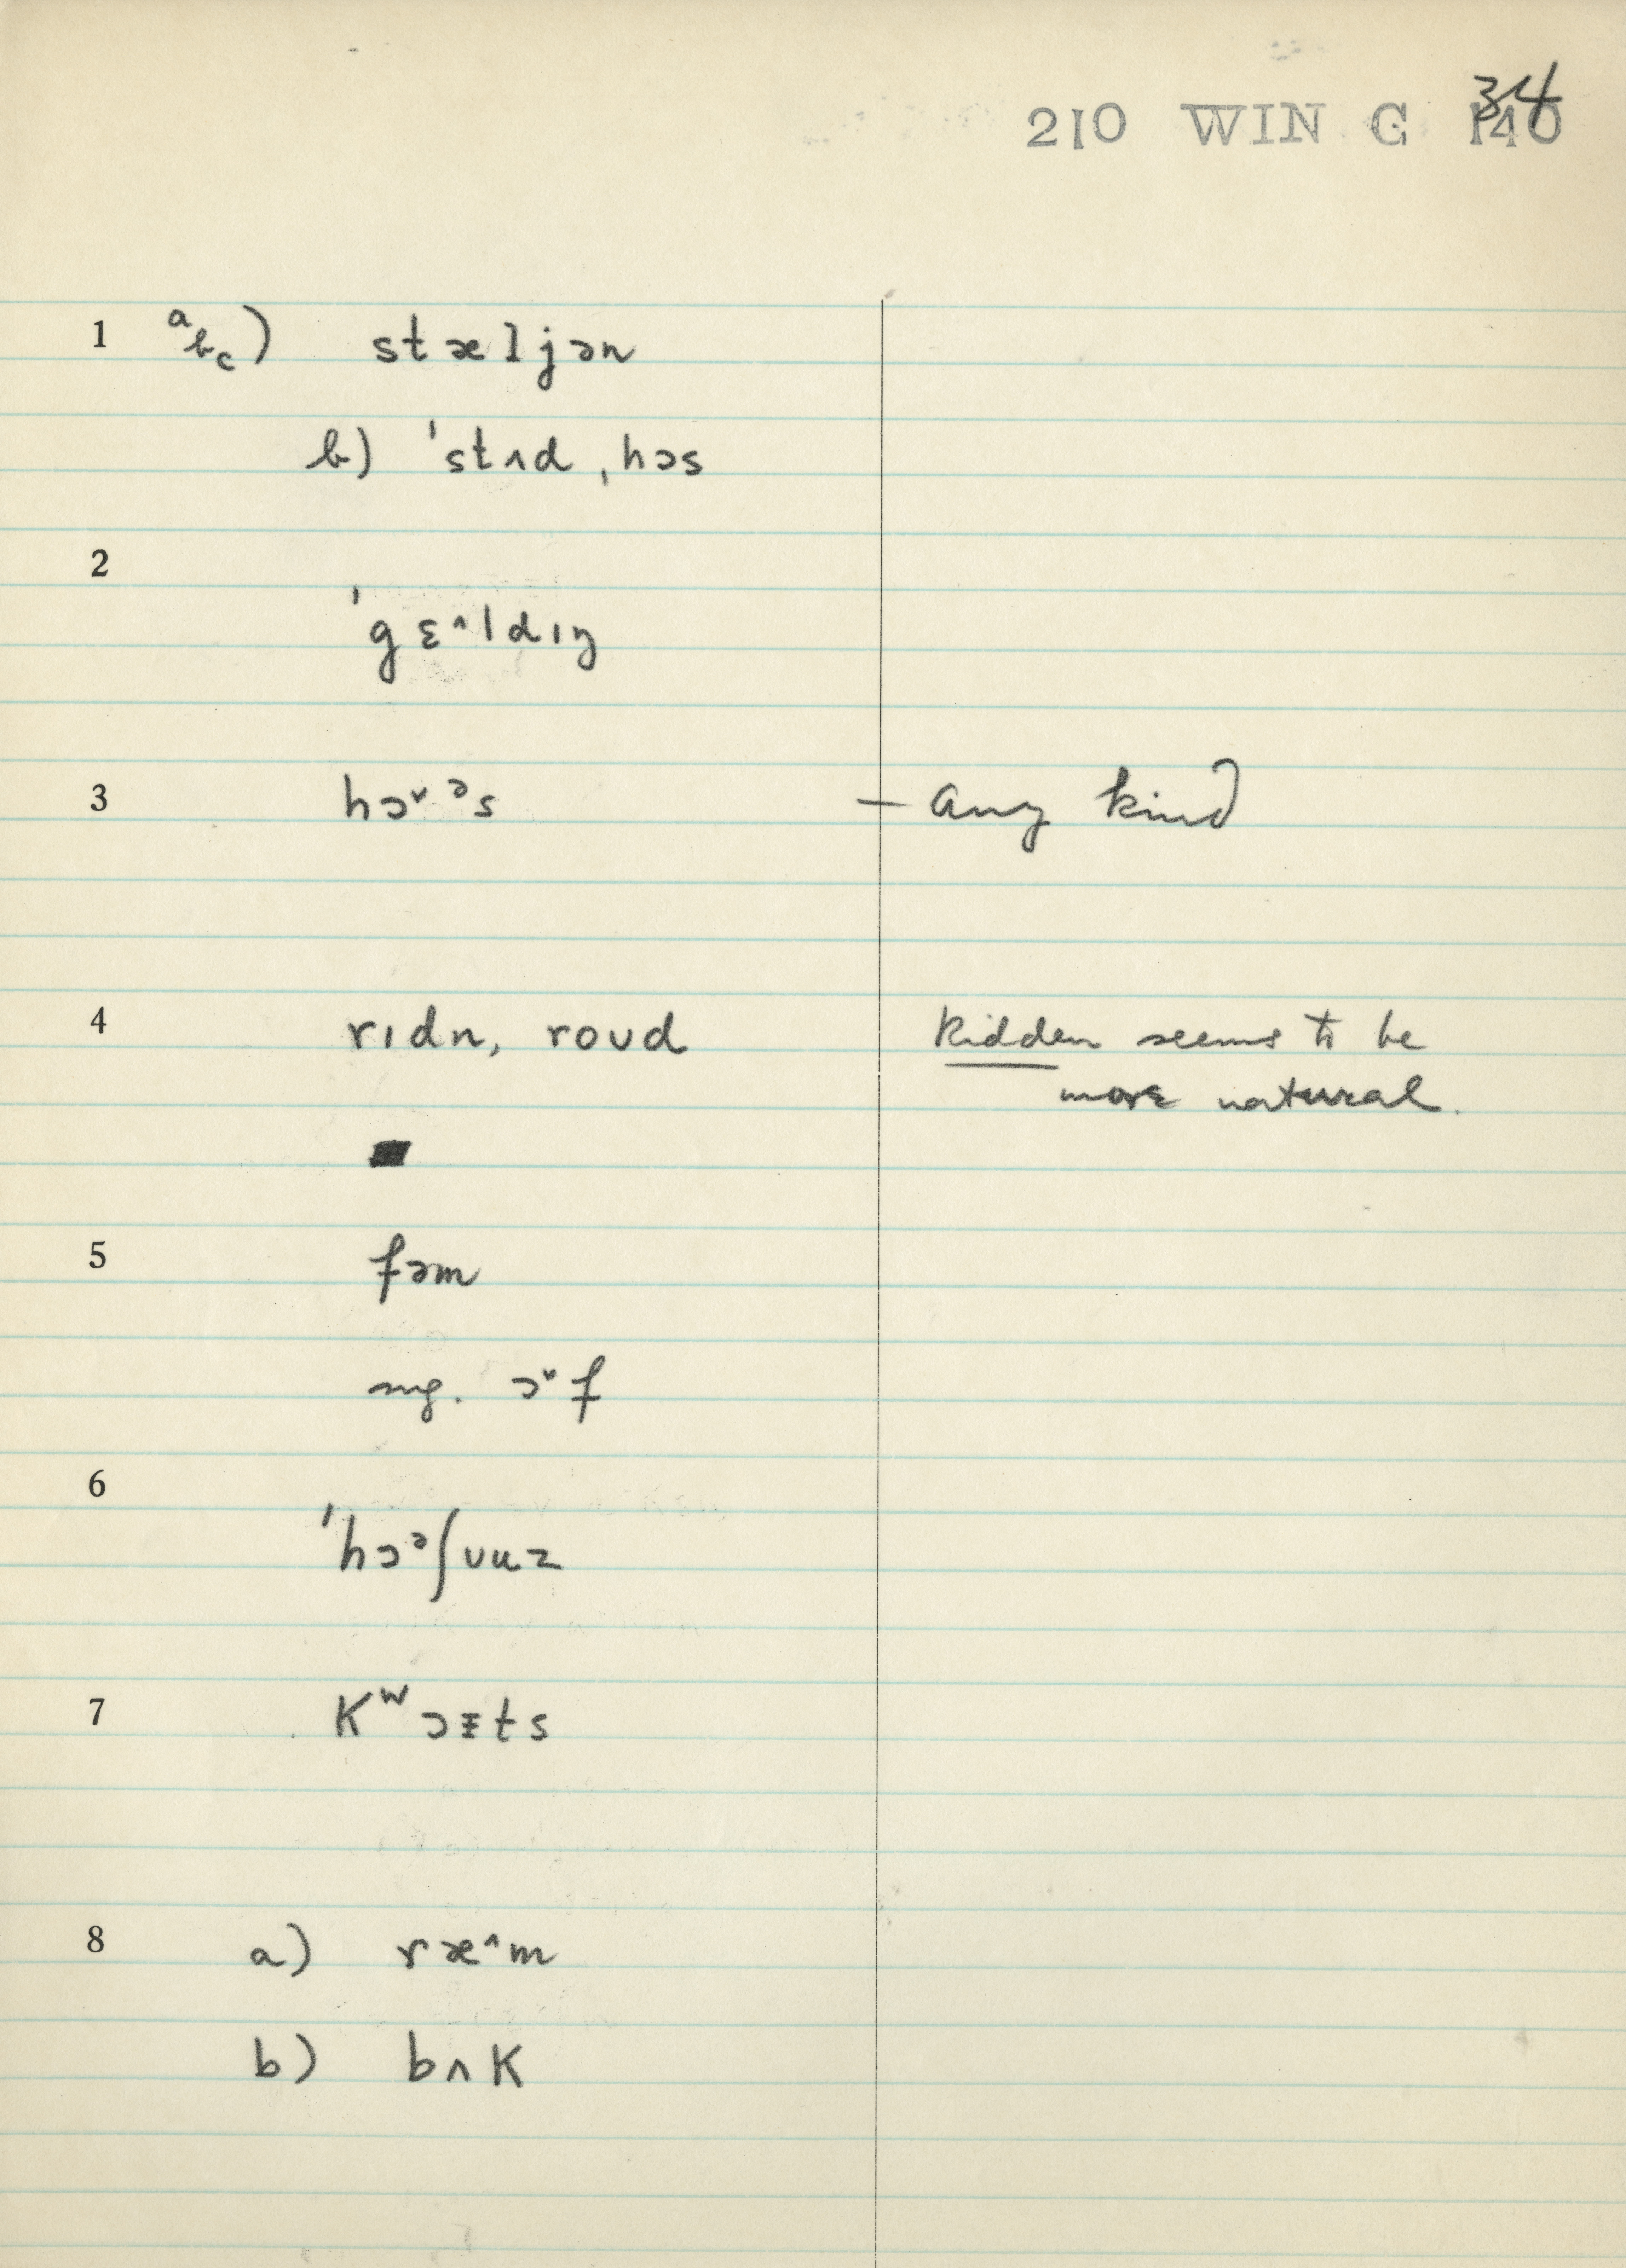 210 WIN G 140 34
1 a b c) stæljən
b) ˈstʌd ˌhɔs
2
ˈgɛ^ldɪŋ
3 hɔᵛᵊs — any kind
4 rɪdn, roʊd Ridden seems to be
more natural.
5 fəm
sng. ɔᵛf
6
ˈhɔᵊʃʊuz
7 Kʷɔɪts
8 a) ræ^m
b) bʌK